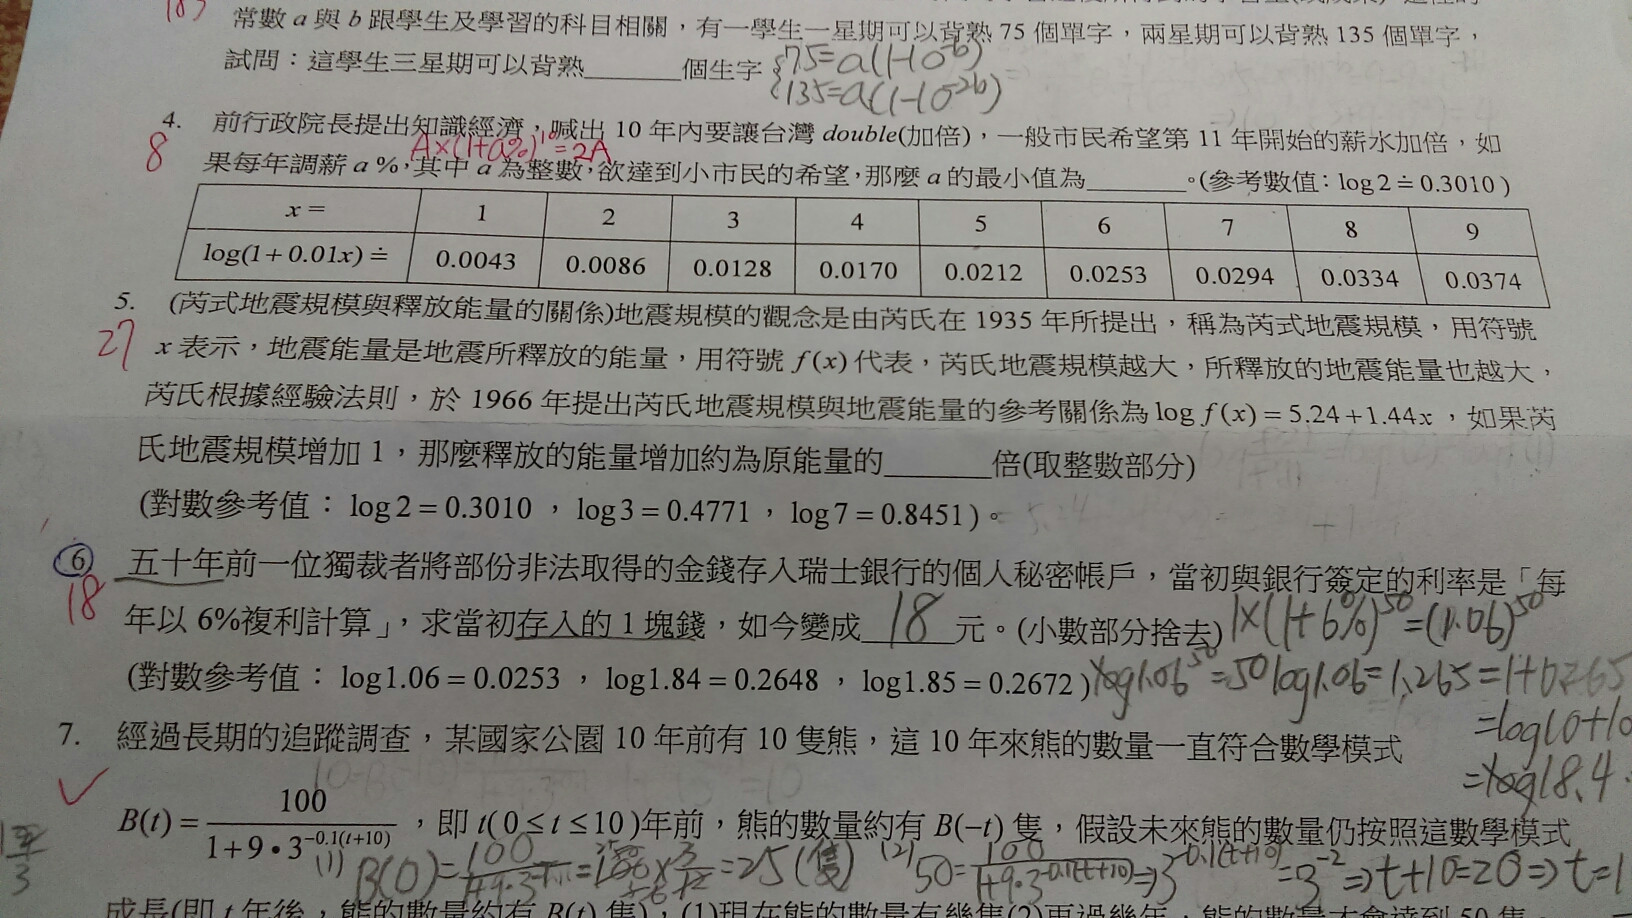 183
常數 a 與 b 跟學生及學習的科目相關，有一學生一星期可以背熟 75 個單字，兩星期可以背熟 135 個單字，
試問：這學生三星期可以背熟______個生字 { 75=a(1-10^-b)
135=a(1-10^-2b)
4. 前行政院長提出知識經濟，喊出 10 年內要讓台灣 double(加倍)，一般市民希望第 11 年開始的薪水加倍，如
8
A×(1+a%)^10=2A
果每年調薪 a %，其中 a 為整數，欲達到小市民的希望，那麼 a 的最小值為______。(參考數值：log 2≒0.3010 )
x = 1 2 3 4 5 6 7 8 9
log(1+0.01x)≒ 0.0043 0.0086 0.0128 0.0170 0.0212 0.0253 0.0294 0.0334 0.0374
5. (芮式地震規模與釋放能量的關係)地震規模的觀念是由芮氏在 1935 年所提出，稱為芮式地震規模，用符號
27
x 表示，地震能量是地震所釋放的能量，用符號 f(x) 代表，芮氏地震規模越大，所釋放的地震能量也越大，
芮氏根據經驗法則，於 1966 年提出芮氏地震規模與地震能量的參考關係為 log f(x)=5.24+1.44x，如果芮
氏地震規模增加 1，那麼釋放的能量增加約為原能量的______倍(取整數部分)
(對數參考值：log 2 = 0.3010 ，log 3 = 0.4771，log 7 = 0.8451)。
6 五十年前一位獨裁者將部份非法取得的金錢存入瑞士銀行的個人秘密帳戶，當初與銀行簽定的利率是「每
18
年以 6%複利計算」，求當初存入的 1 塊錢，如今變成 18 元。(小數部分捨去) 1×(1+6%)^50=(1.06)^50
(對數參考值：log1.06 = 0.0253 ，log1.84 = 0.2648 ，log1.85 = 0.2672 ) log1.06^50=50log1.06=1.265=1+0.265
=log10+lo
=log18.4
7. 經過長期的追蹤調查，某國家公園 10 年前有 10 隻熊，這 10 年來熊的數量一直符合數學模式
B(t)=100/(1+9•3^-0.1(t+10))，即 t( 0≤t≤10 )年前，熊的數量約有 B(-t) 隻，假設未來熊的數量仍按照這數學模式
(1) B(0)= =25(隻) (2) 50=100/(1+9·3^-0.1(t+10))⇒3^-0.1(t+10)=3^-2⇒t+10=20⇒t=1
成長(即 t 年後，熊的數量約有 B(t) 隻)，(1)現在熊的數量有幾隻(2)再過幾年，熊的數量才會達到 50 隻